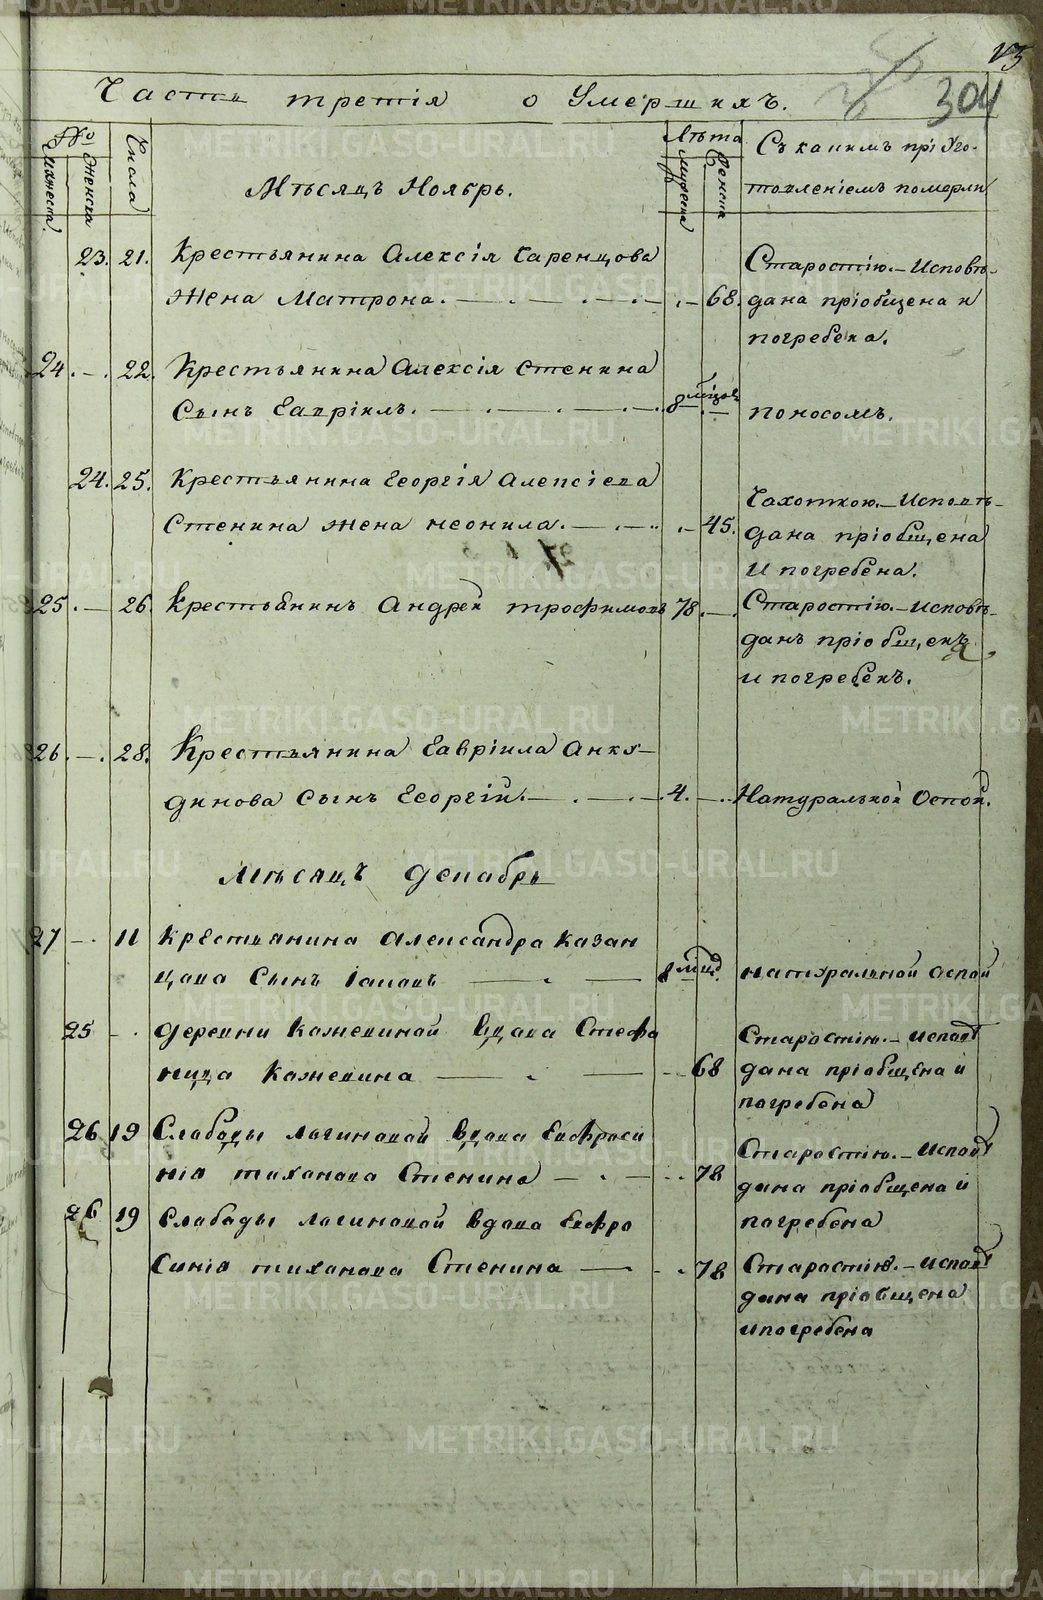 13
304
Часть третія о Умершихъ.
№
мужеска
женска
Числа
Мѣсяцъ Ноябрь.
Лѣта
мужеска
женска
Съ какимъ пріуго-
товленіемъ померли
23. 21. Крестьянина Алексія Саренцова
жена Матрона. 68.
Старостію. – Исповѣ-
дана пріобщена и
погребена.
24. – 22. Крестьянина Алексія Стенина
сынъ Гавріилъ. 8 мѣсяц поносомъ.
24. 25. Крестьянина Георгія Алексіева
Стенина жена Неонила. 45.
Чахоткою. – Исповѣ-
дана пріобщена
и погребена.
25. – 26. Крестьянинъ Андрей Трофимовъ 78.
Старостію. – Исповѣ-
данъ пріобщенъ
и погребенъ.
26. – 28. Крестьянина Гавріила Анку-
динова сынъ Георгій. 4. Натуральной Оспой.
Мѣсяцъ Декабрь
27 – 11 Крестьянина Александра Казан
цова сынъ Іаковъ 8 мѣяц натуральной оспой
25 – Деревни Кожевиной вдова Стефа
нида Кожевина 68
Старостію. – исповѣ
дана пріобщена и
погребена
26 19 Слободы Логиновой вдова Евфроси
нія тихонова Стенина 78
Старостію. – исповѣ
дана пріобщена и
погребена
26 19 Слободы Логиновой вдова Евфро
синія тихонова Стенина 78
Старостію. – исповѣ
дана пріобщена
ипогребена
METRIKI.GASO-URAL.RU